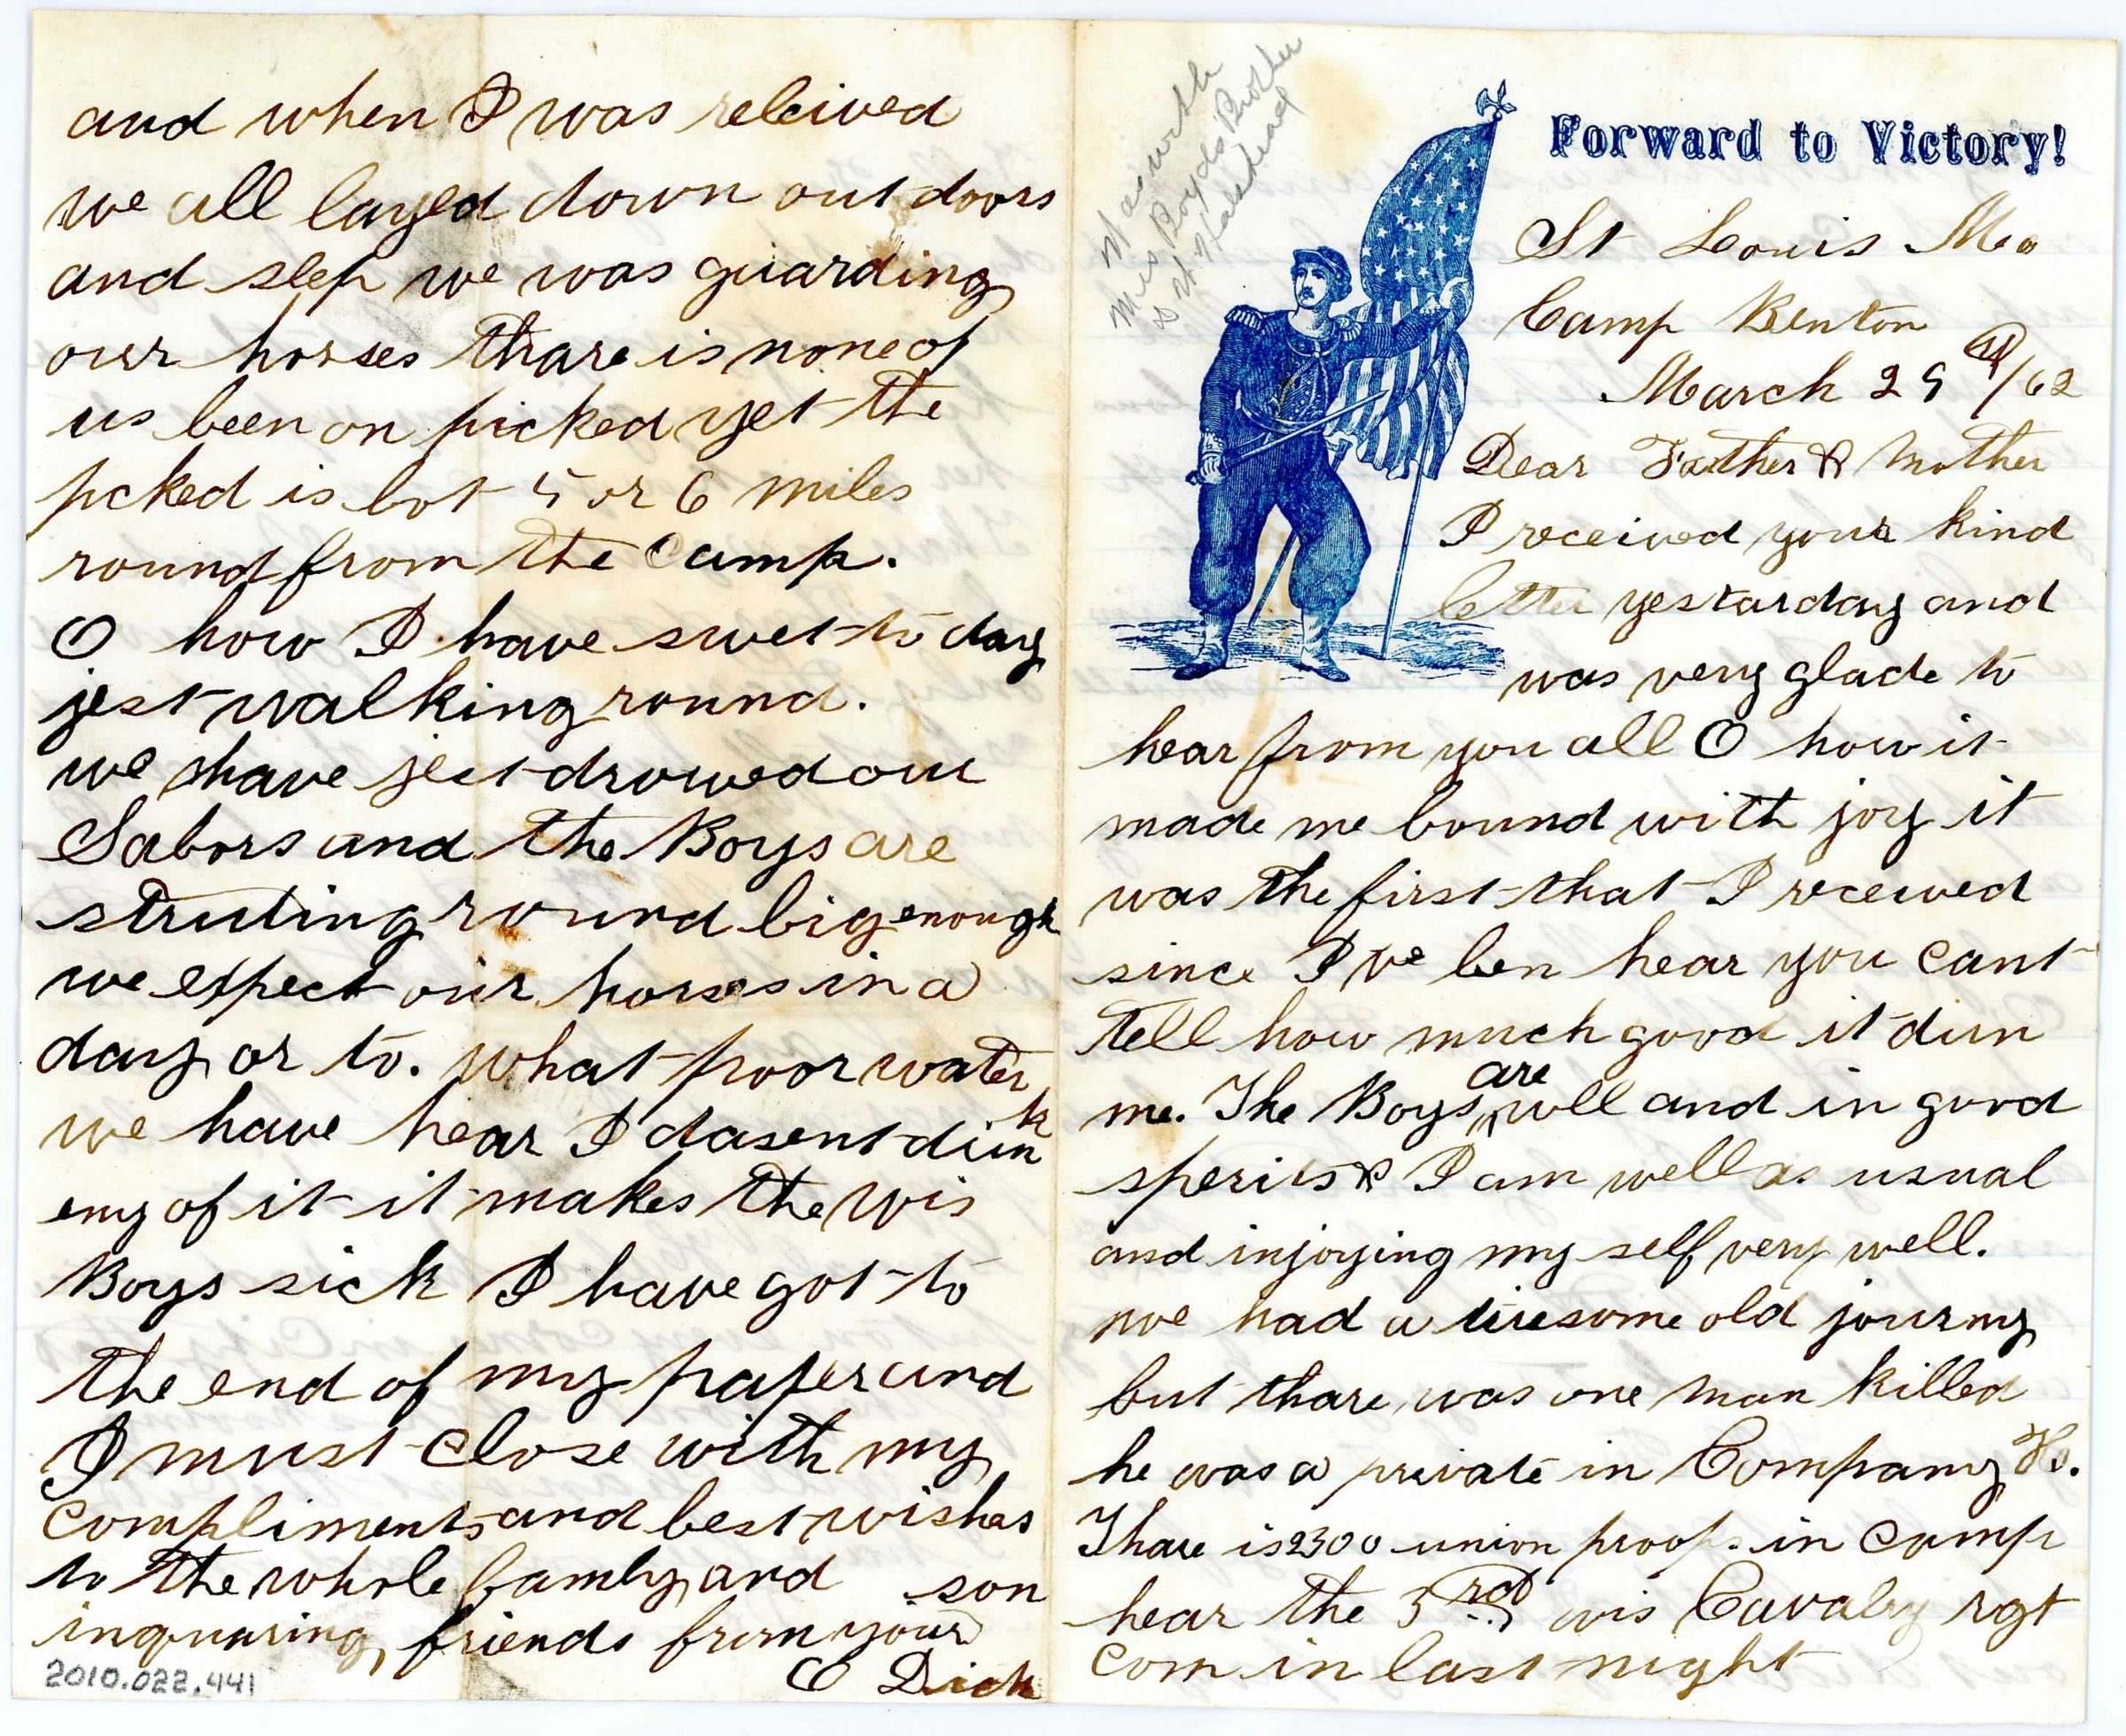 Mrs Boyds Brother
Forward to Victory!
St Louis Mo
Camp Benton
March 29th/62
Dear Father & Mother
I received your kind
letter yestarday and
was very glade to
hear from you all O how it
made me bound with joy it
was the first that I received
since I ve ben hear you cant
tell how much good it dun
me. The Boys are well and in good
sperits & I am well as usual
and injoying my self very well.
we had a tiresome old journy
but thare was one man killed
he was a private in Company
Thare is 2300 union proops in camp
hear the 3rd wis Cavalry rgt
com in last night
and when I was releived
we all layed down out doors
and slep we was guarding
our horses thare is none of
us been on picked yet the
pcked is bot 5 or 6 miles
round from the Camp.
O how I have swet to day
jest walking round.
we have jest drowed our
Sabors and the Boys are
struting round big enough
we expect our horses in a
day or to. what poor water
we have hear I dasent dink
eny of it it makes the wis
Boys sick I have got to
the end of my paper and
I must close with my
compliments and best wishes
to the whole famly and
inquaring friends from your son
E Dick
2010.022.441